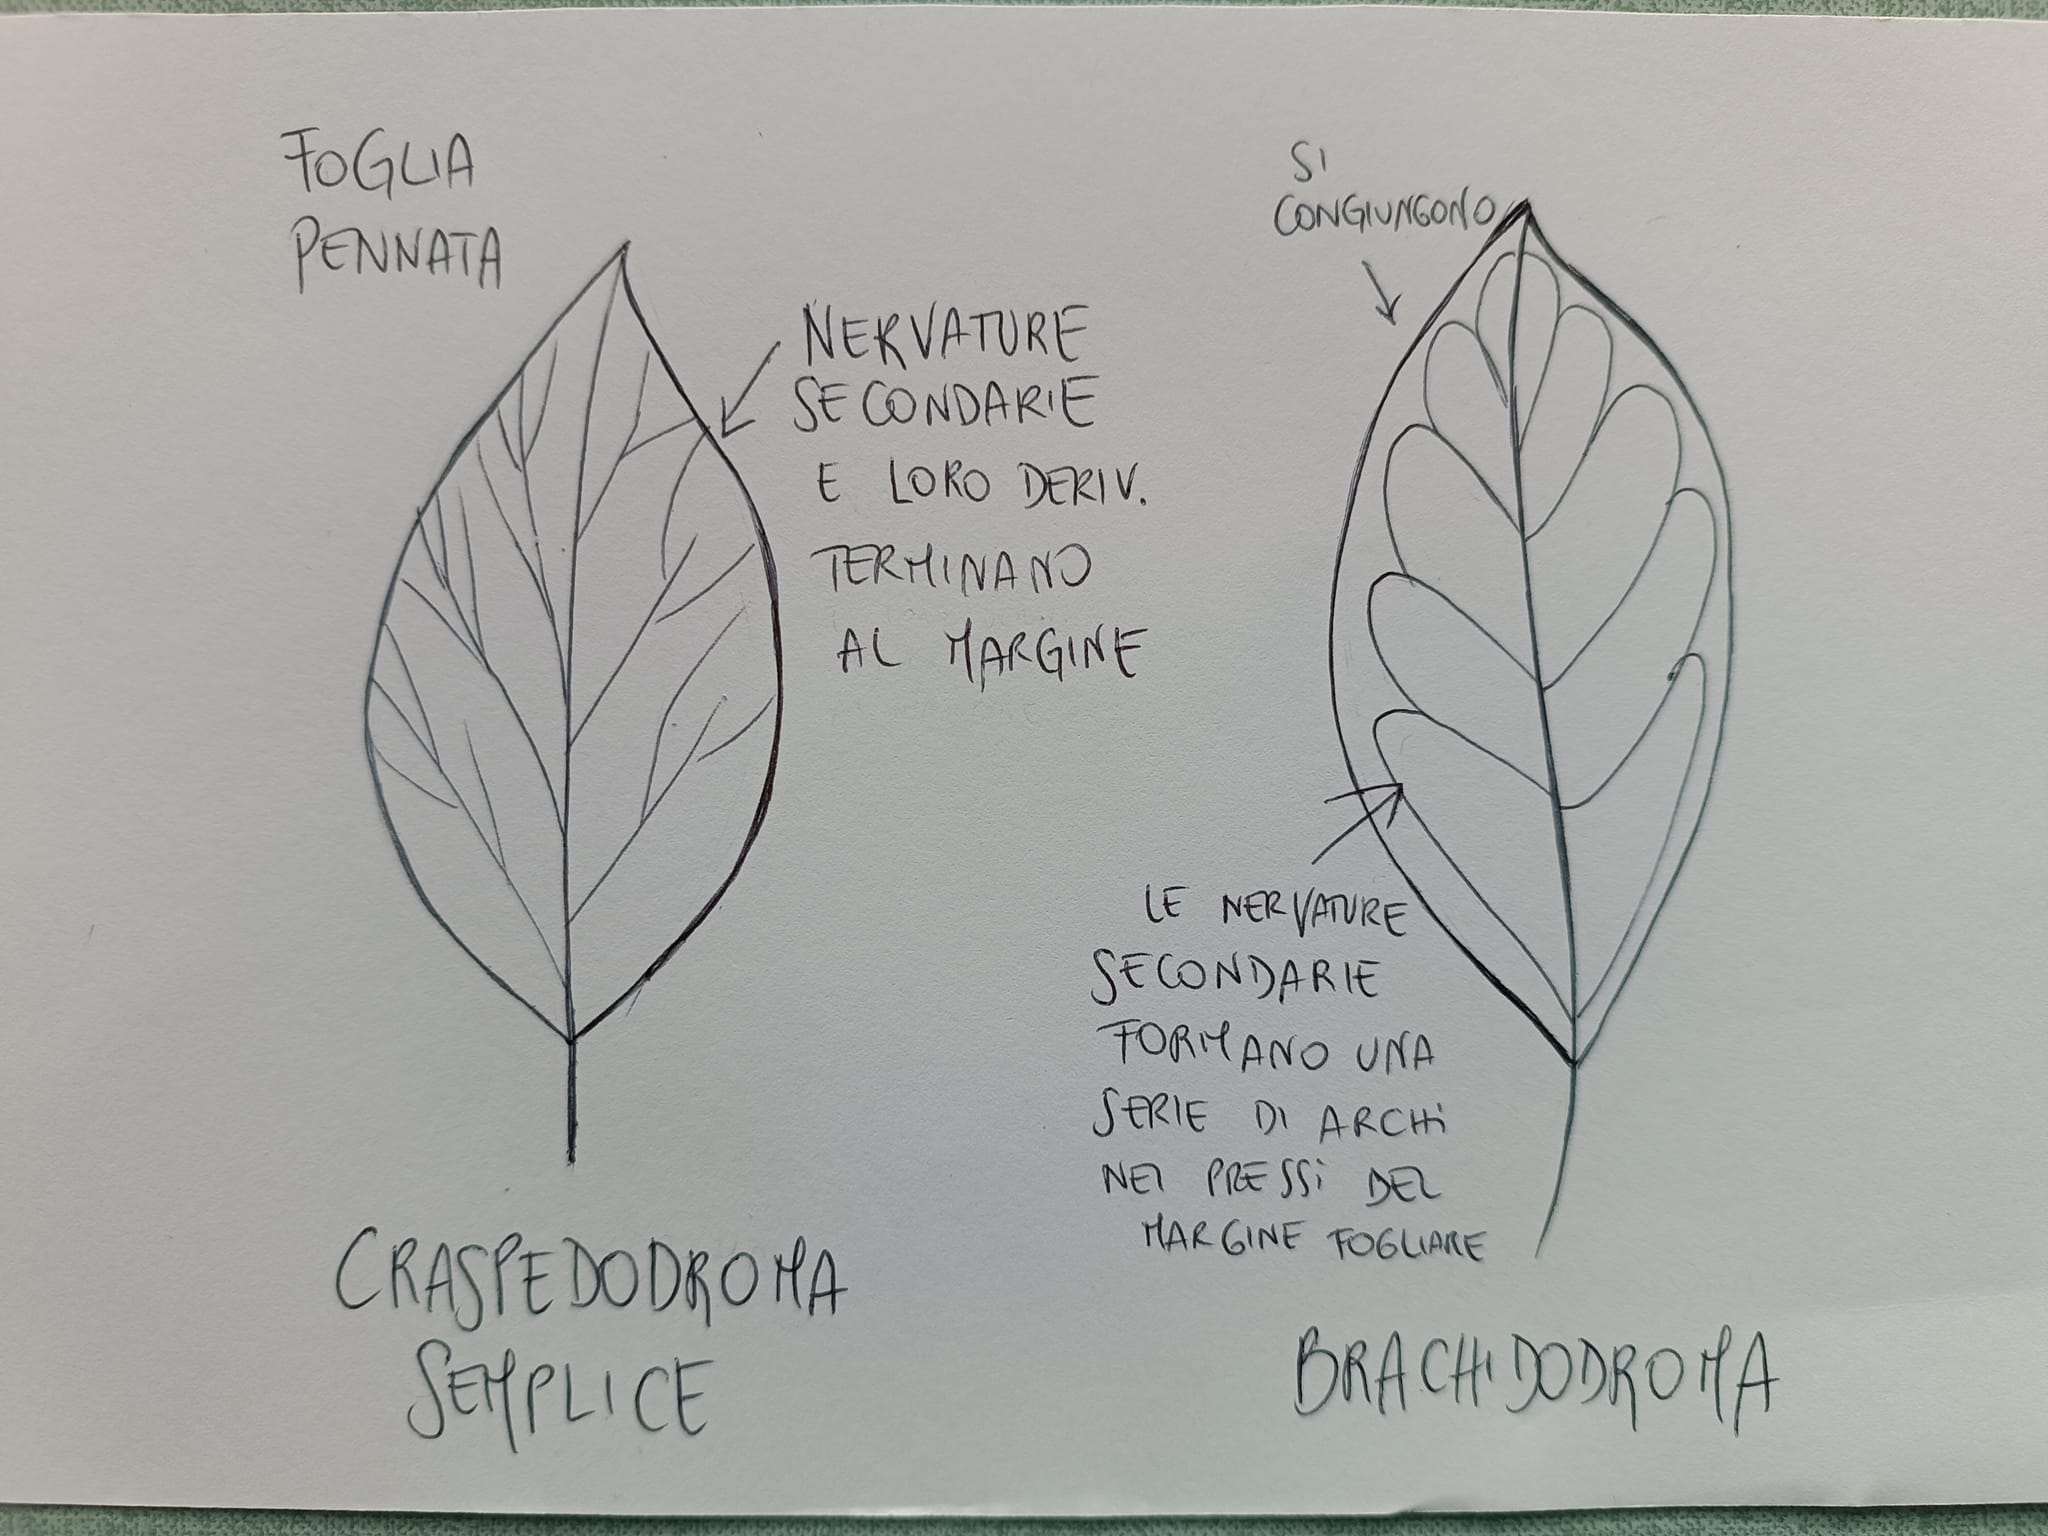 FOGLIA
PENNATA
NERVATURE
SECONDARIE
E LORO DERIV.
TERMINANO
AL MARGINE
CRASPEDODROMA
SEMPLICE
SI
CONGIUNGONO
LE NERVATURE
SECONDARIE
FORMANO UNA
SERIE DI ARCHI
NEI PRESSI DEL
MARGINE FOGLIARE
BRACHIDODROMA